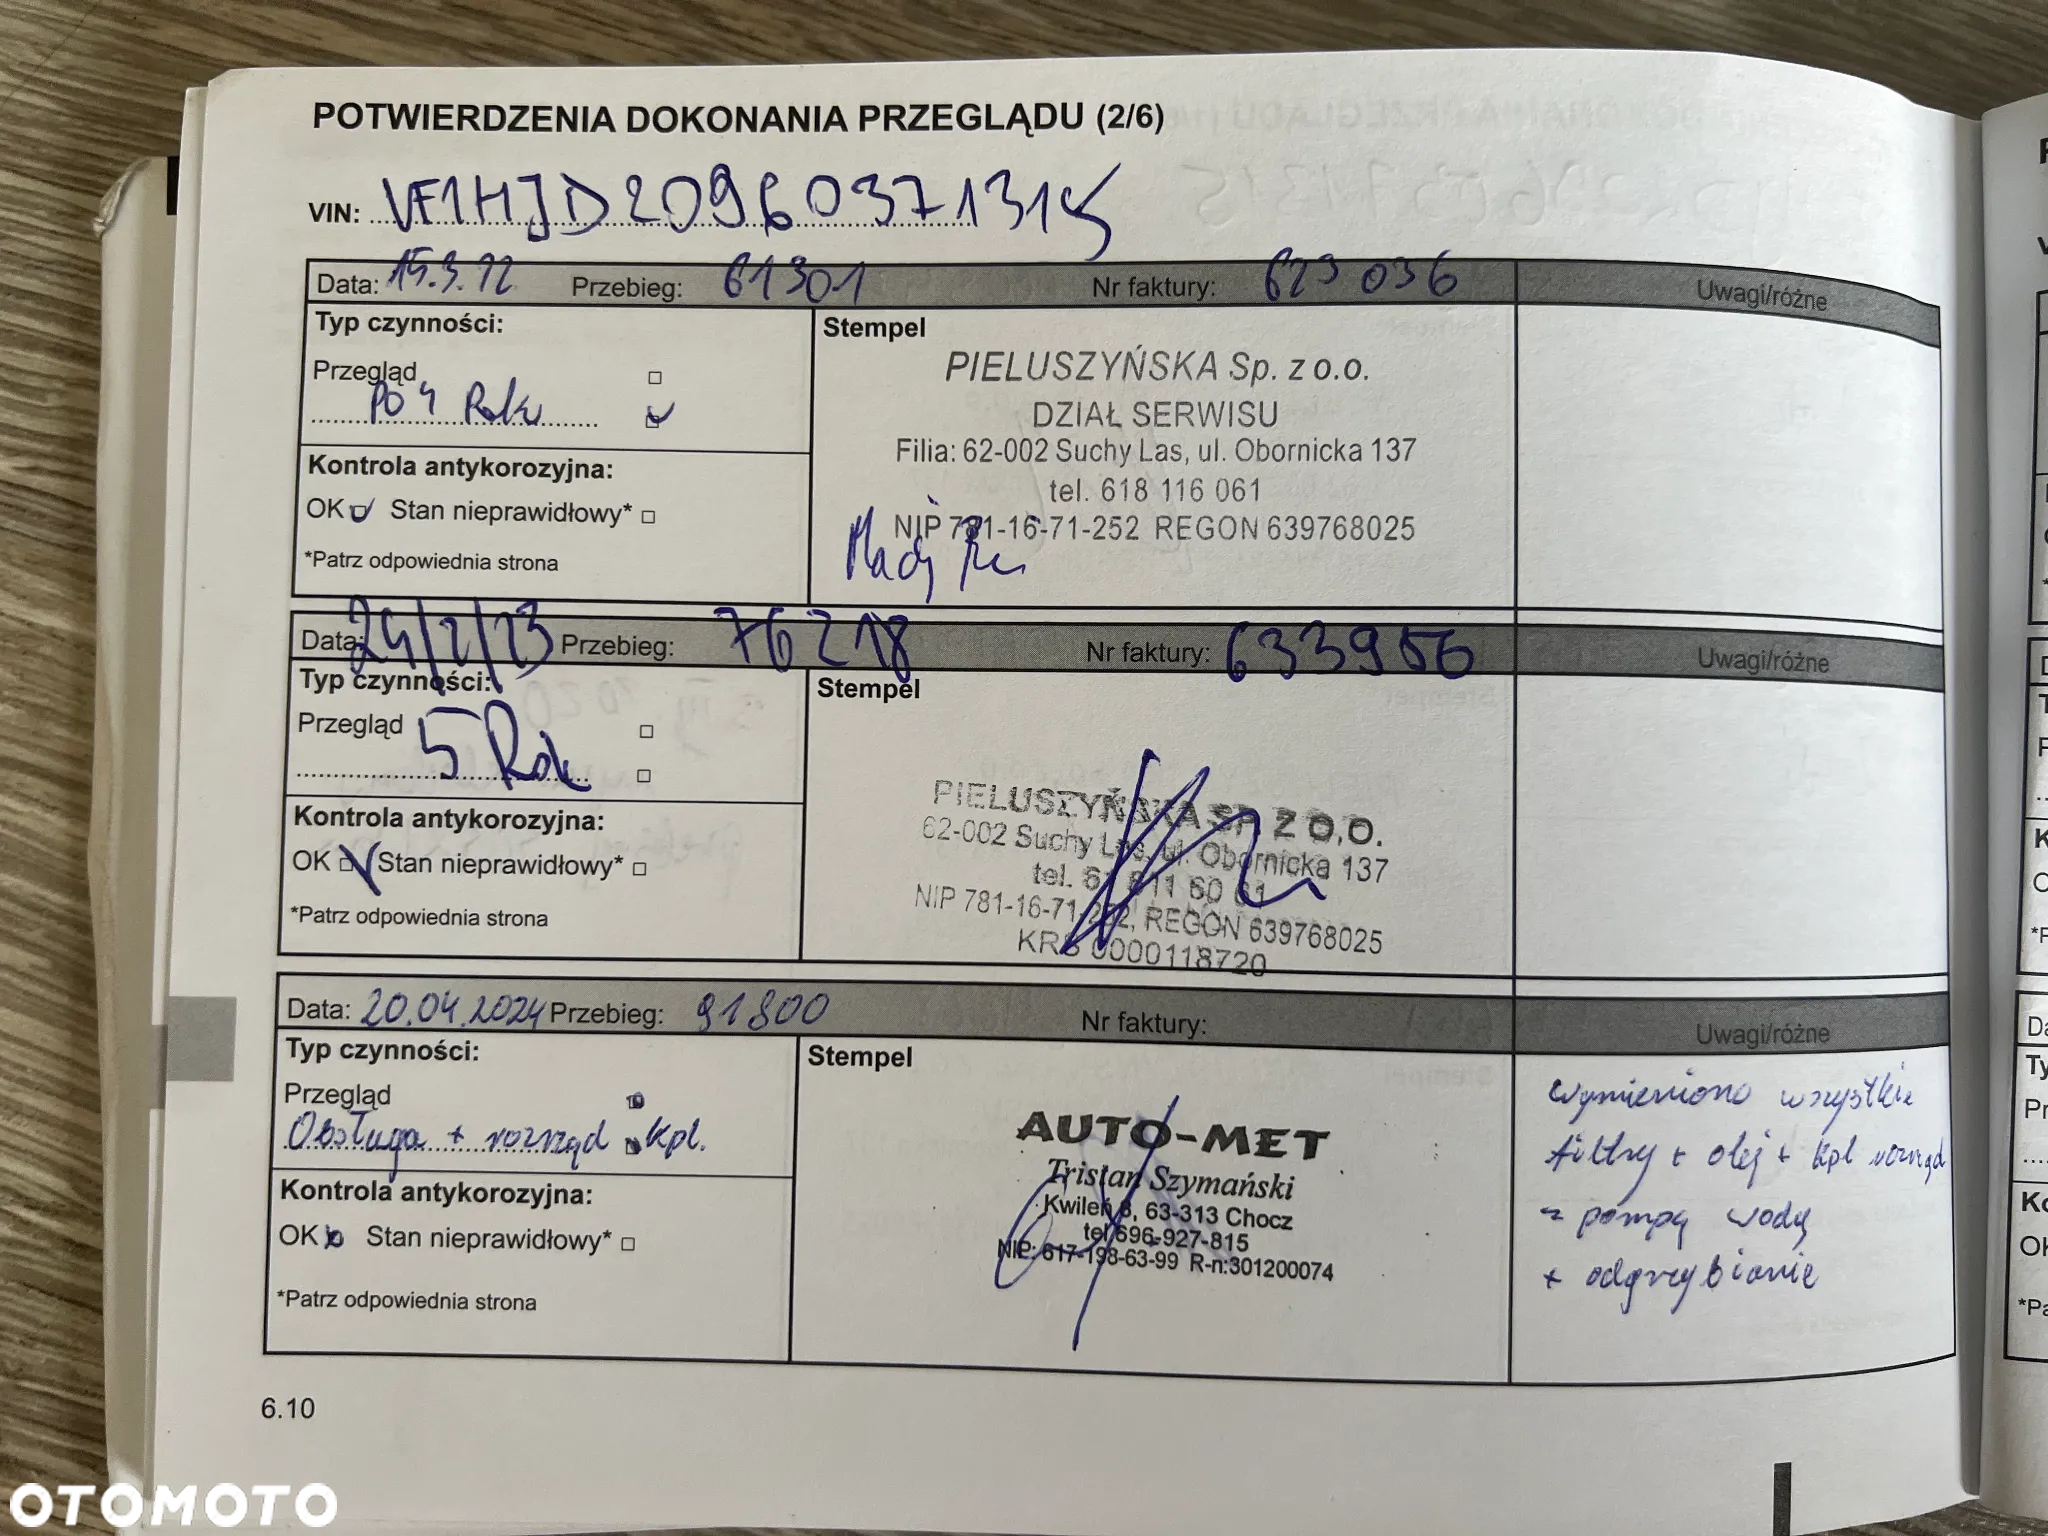 POTWIERDZENIA DOKONANIA PRZEGLĄDU (2/6)
VIN: VF1HJD20960371315
Data: 15.3.22 Przebieg: 61301 Nr faktury: 623036 Uwagi/różne
Typ czynności:
Przegląd
po 4 Roku
Kontrola antykorozyjna:
OK Stan nieprawidłowy*
*Patrz odpowiednia strona
Stempel
PIELUSZYŃSKA Sp. z o.o.
DZIAŁ SERWISU
Filia: 62-002 Suchy Las, ul. Obornicka 137
tel. 618 116 061
NIP 781-16-71-252 REGON 639768025
Data: 24/2/23 Przebieg: 76218 Nr faktury: 633956 Uwagi/różne
Typ czynności:
Przegląd
5 Rok
Kontrola antykorozyjna:
OK Stan nieprawidłowy*
*Patrz odpowiednia strona
Stempel
PIELUSZYŃSKA SP. Z O.O.
62-002 Suchy Las, ul. Obornicka 137
tel. 61 811 60 61
NIP 781-16-71-252, REGON 639768025
KRS 0000118720
Data: 20.04.2024 Przebieg: 91800 Nr faktury: Uwagi/różne
Typ czynności:
Przegląd
Obsługa + rozrząd kpl.
Kontrola antykorozyjna:
OK Stan nieprawidłowy*
*Patrz odpowiednia strona
Stempel
AUTO-MET
Tristan Szymański
Kwileń 8, 63-313 Chocz
tel 696-927-815
NIP: 617-198-63-99 R-n:301200074
wymieniono wszystkie
filtry + olej + kpl rozrząd
z pompą wody
+ odgrzybianie
6.10
OTOMOTO